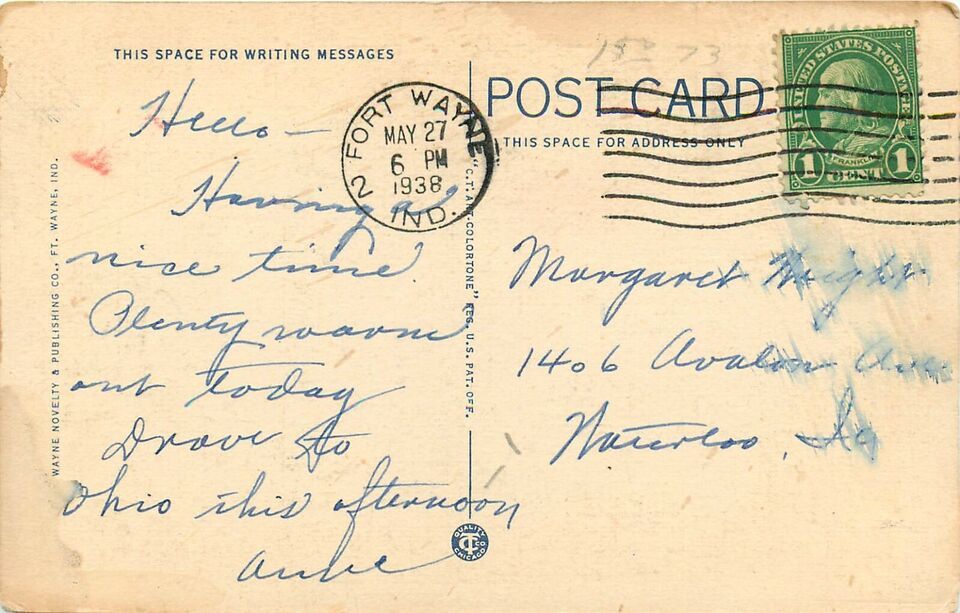 THIS SPACE FOR WRITING MESSAGES
Hello —
Having a
nice time
Plenty warm
out today
Drove to
Ohio this afternoon
Anne
WAYNE NOVELTY & PUBLISHING CO., FT. WAYNE, IND.
"C.T. ART-COLORTONE" REG. U.S. PAT. OFF.
QUALITY
CT CO
CHICAGO
FORT WAYNE
2
MAY 27
6 PM
1938
IND.
POST CARD
THIS SPACE FOR ADDRESS ONLY
73
UNITED STATES POSTAGE
FRANKLIN
1 1
Margaret
1406 Avalon Ave
Waterloo, Ia